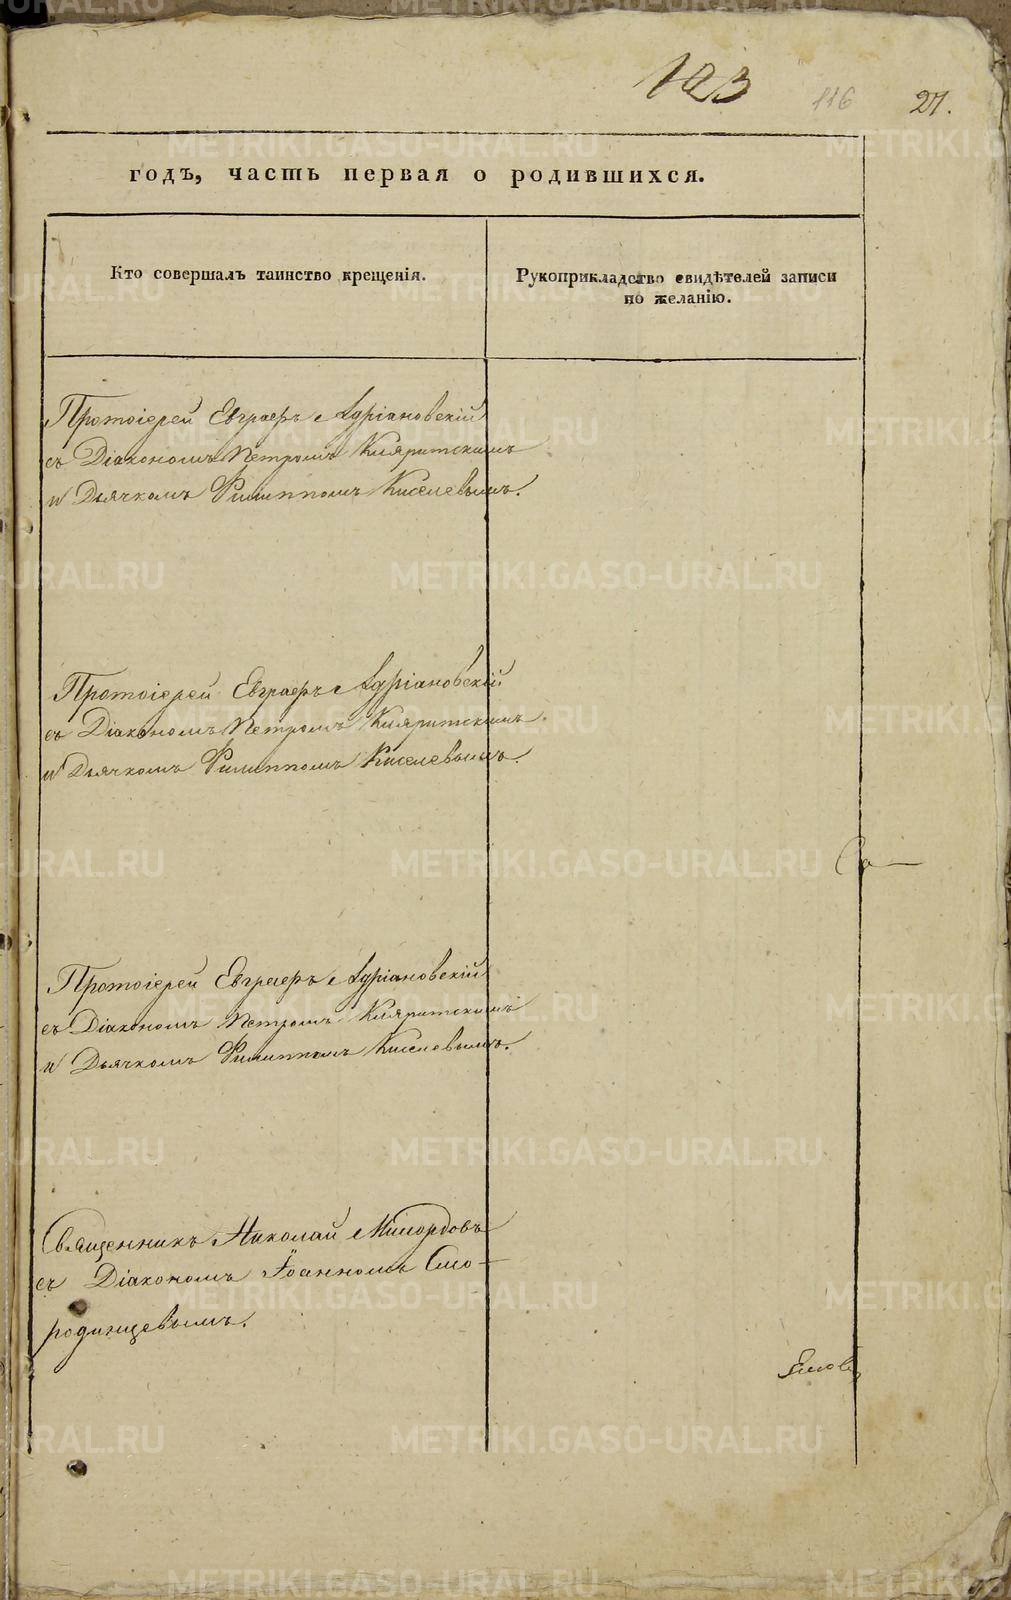 103
116
27.
годъ, часть первая о родившихся.
Кто совершалъ таинство крещенія.
Рукоприкладство свидѣтелей записи
по желанію.
Протоіерей Евграфъ Адріановскій
съ Діакономъ Петромъ Кляритскимъ
и Дьячкомъ Филиппомъ Киселевымъ.
Протоіерей Евграфъ Адріановскій
съ Діакономъ Петромъ Кляритскимъ
и Дьячкомъ Филиппомъ Киселевымъ.
Протоіерей Евграфъ Адріановскій
съ Діакономъ Петромъ Кляритскимъ
и Дьячкомъ Филиппомъ Киселевымъ.
Священникъ Николай
съ Діакономъ Іоанномъ Смо-
родинцевымъ.
METRIKI.GASO-URAL.RU